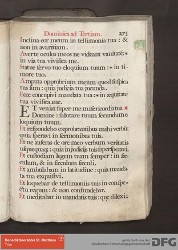 Dominica ad Tertiam. 273
Inclina cor meum in testimonia tua : &
non in avaritiam.
Averte oculos meos ne videant vanitatem :
in via tua vivifica me.
Statue servo tuo eloquium tuum : in ti-
more tuo.
Amputa opprobrium meum quod suspica-
tus sum : quia judicia tua jucunda.
Ecce concupivi mandata tua : in æquitate
tua vivifica me.
ET veniat super me misericordia tua
Domine : salutare tuum secundum
eloquium tuum.
Et respondebo exprobrantibus mihi verbū :
quia speravi in sermonibus tuis.
Et ne auferas de ore meo verbum veritatis
usquequaque : quia in judiciis tuis supersperavi.
Et custodiam legem tuam semper : in
sæculum &
Et ambulabam in latitudine : quia manda-
ta tua exquisivi.
Et loquebar de testimoniis tuis in conspe-
ctu regum : & non confundebar.
Et meditabar in mandatis tuis : quæ dilexi.
DFG